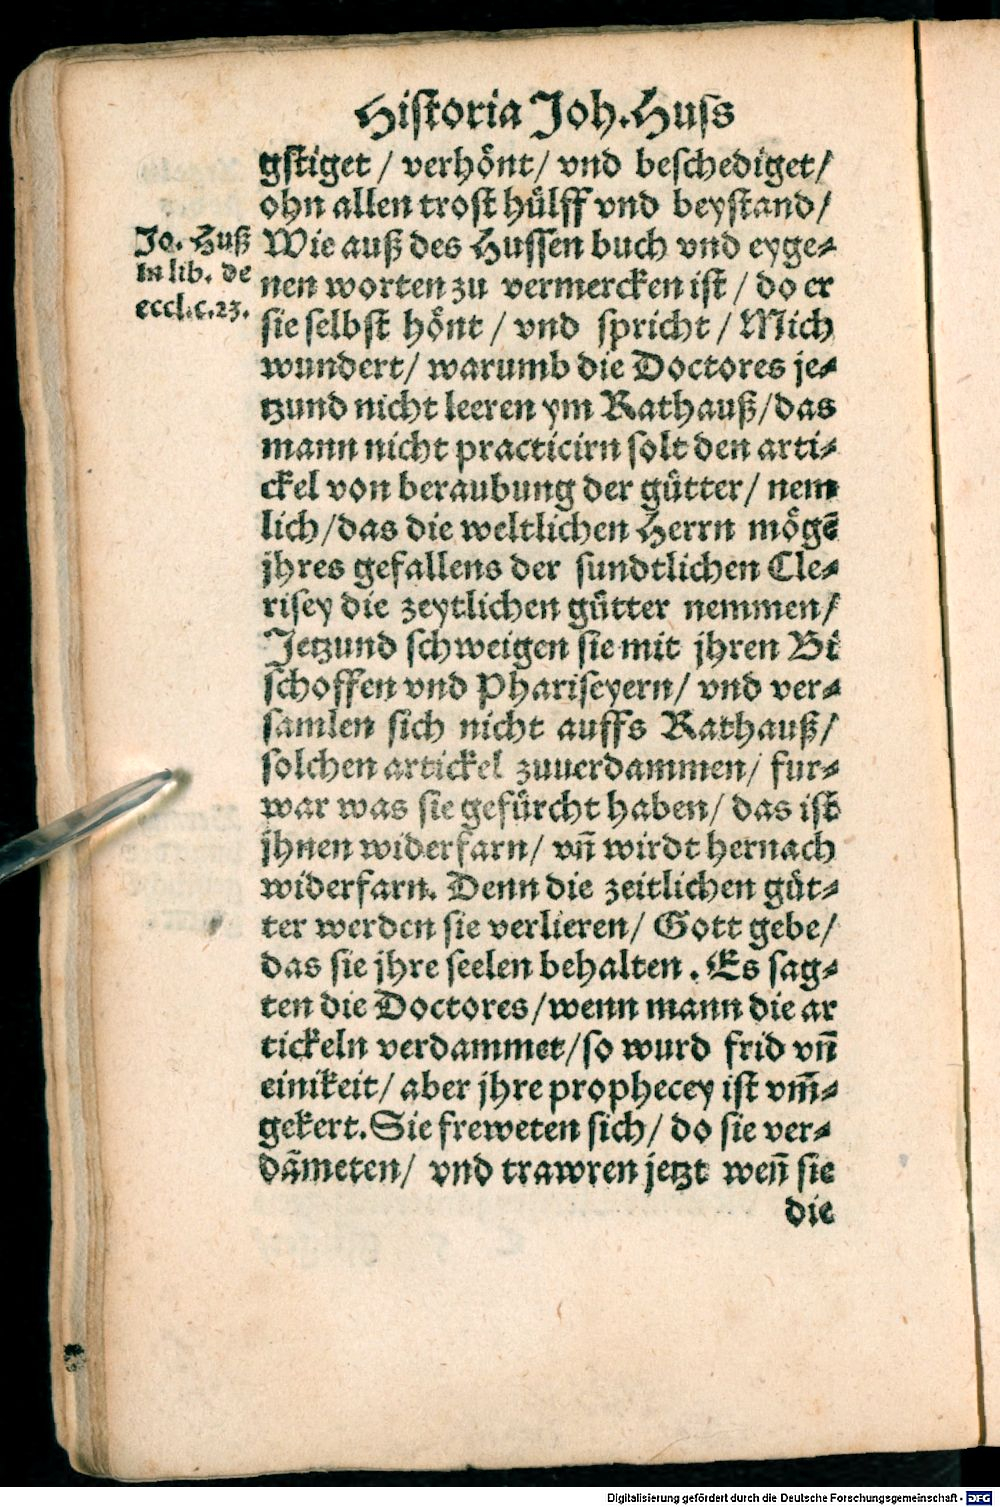 Historia Joh. Huss
gstiget / verhönt / vnd beschediget /
ohn allen trost hülff vnd beystand /
Jo. Huß
In lib. de
eccl. c. 23.
Wie auß des Hussen buch vnd eyge-
nen worten zu vermercken ist / do er
sie selbst hönt / vnd spricht / Mich
wundert / warumb die Doctores je-
tzund nicht leeren ym Rathauß / das
mann nicht practicirn solt den arti-
ckel von beraubung der gütter / nem
lich / das die weltlichen Herrn mögẽ
jhres gefallens der sundtlichen Cle-
risey die zeytlichen gütter nemmen /
Jetzund schweigen sie mit jhren Bi
schoffen vnd Phariseyern / vnd ver-
samlen sich nicht auffs Rathauß /
solchen artickel zuuerdammen / fur-
war was sie gefürcht haben / das ist
jhnen widerfarn / vñ wirdt hernach
widerfarn. Denn die zeitlichen güt-
ter werden sie verlieren / Gott gebe /
das sie jhre seelen behalten. Es sag-
ten die Doctores / wenn mann die ar
tickeln verdammet / so wurd frid vñ
einikeit / aber jhre prophecey ist vm̃-
gekert. Sie freweten sich / do sie ver-
dãmeten / vnd trawren jetzt weñ sie
die
Digitalisierung gefördert durch die Deutsche Forschungsgemeinschaft - DFG